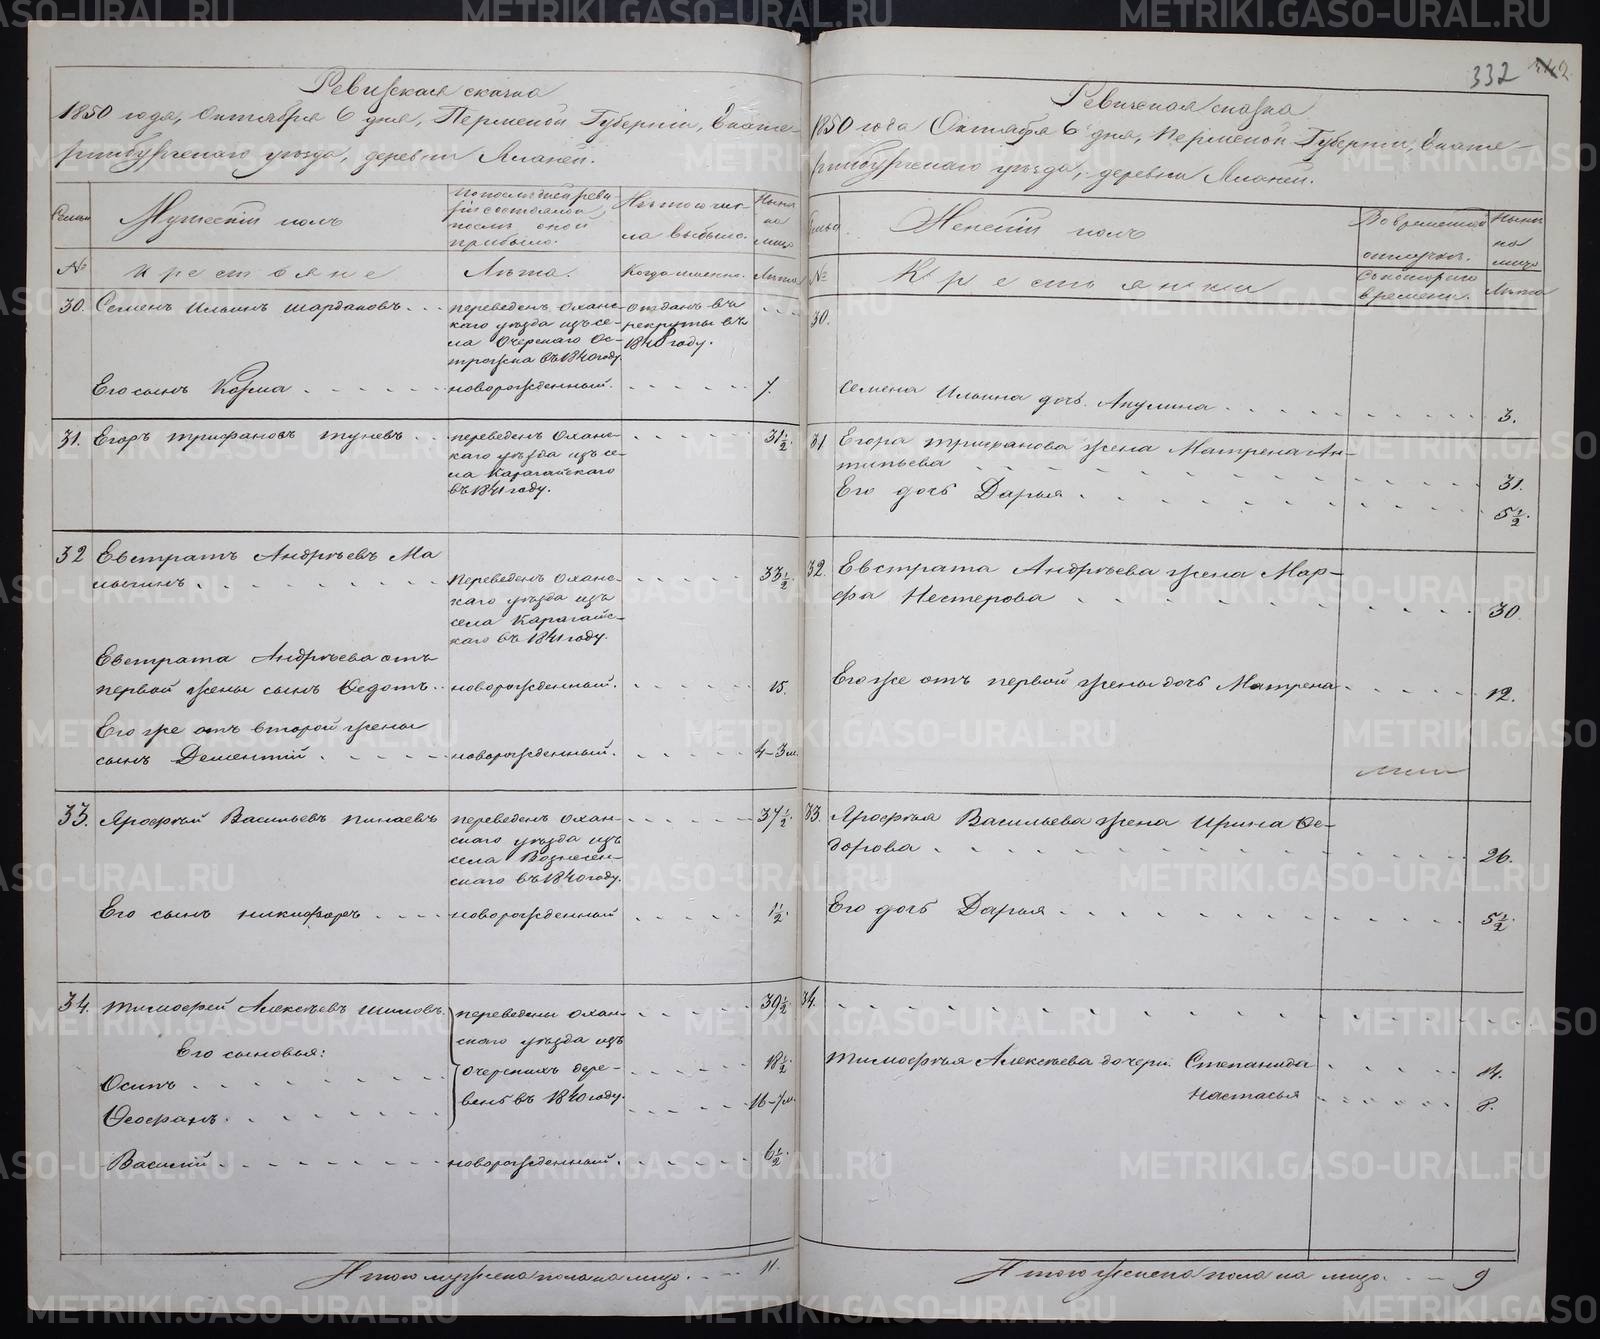 Ревизская сказка
1850 года, Октября 6 дня, Пермской Губерніи, Екате-
ринбургскаго уѣзда, деревни Яланей.
Семьи
Мужескій полъ
По послѣдней реви
зіи состояло и
послѣ оной
прибыло.
Изъ того чис-
ла выбыло.
Нынѣ
на
лицо
№
крестьяне
Лѣта.
Когда именно.
Лѣта
30. Семенъ Ильинъ Шардаковъ. переведенъ Охан- отданъ въ
скаго уѣзда изъ се- рекруты въ
ла Очерскаго Ос- 1848 году.
трожка въ 1840 году.
Его сынъ Козма новорожденный. 7.
31. Егоръ Трифановъ Туневъ переведенъ Охан- 31½.
скаго уѣзда изъ се-
ла Карагайскаго
въ 1841 году.
32 Евстратъ Андрѣевъ Ма
льгинъ. переведенъ Охан- 33½.
скаго уѣзда изъ
села Карагайс-
каго въ 1841 году.
Евстрата Андрѣева отъ
первой жены сынъ Ѳедотъ новорожденный. 15.
Его же отъ второй жены
сынъ Дементій новорожденный. 4-3 м.
33. Ярофѣй Васильевъ Пинаевъ переведенъ Охан- 37½
скаго уѣзда изъ
села Вознесен-
скаго въ 1840 году.
Его сынъ Никифоръ новорожденный 1½.
34. Тимофей Алексѣевъ Шиловъ. переведены Охан- 39½
скаго уѣзда изъ
Его сыновья:
Осипъ очерскихъ дере- 18½
вень въ 1840 году.
Ѳеофанъ. 16-7 м.
Василій новорожденный. 6½.
Итого мужеска пола на лицо. 11.
332
Ревизская сказка
1850 года Октября 6 дня, Пермской Губерніи, Екате-
ринбургскаго уѣзда, деревни Яланей.
Семьи
Женскій полъ
Во временной
отлучкѣ.
Нынѣ
на
лицо
№
Крестьянки
Съ котораго
времени.
Лѣта
30.
Семена Ильина дочь Акулина 3.
31 Егора Трифанова жена Матрена Ан-
типьева 31.
Его дочь Дарья 5½.
32. Евстрата Андрѣева жена Мар-
фа Нестерова 30
Его же отъ первой жены дочь Матрена 12.
33. Ярофѣя Васильева жена Ирина Ѳе-
дорова 26.
Его дочь Дарья 5½.
34.
Тимофѣя Алексѣева дочери. Степанида 14.
Настасья 8.
Итого женска пола на лицо. 9
METRIKI.GASO-URAL.RU